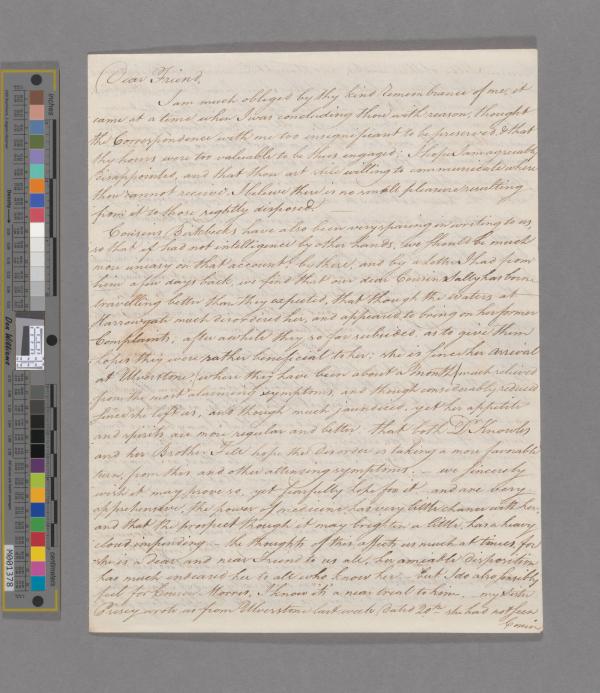 Dear Friend,
I am much obliged by thy kind remembrance of me, it
came at a time when I was concluding thou with reason, thought
the Correspondence with me too insignificant to be preserved, & that
thy hours were too valuable to be thus engaged; I hope I am agreeably
disappointed, and that thou art still willing to communicate where
thou cannot receive. I believe there is no small pleasure resulting
from it to those rightly disposed.
Cousens Birkbecks have also been very sparing in writing to us,
so that if had not intelligence by other hands, we should be much
more uneasy on that account. & by a letter I had from
him a few days back, we find that our dear Cousin Sally has borne
travelling better than they expected, that though the waters at
Harrowgate much disordered her, and appeared to bring on her former
Complaints, after awhile they so far subsided, as to give them
hopes they were rather beneficial to her; she is since her arrival
at Ulverstone, (where they have been about a month) much relieved
from the most alarming symptoms, and though considerably reduced
since she left us, and though much jaundiced, yet her appetite
and spirits are more regular and better. that both Dr. Knowles
and her Brother hope the disorder is taking a more favorable
turn, from this and other attending symptoms. - we sincerely
wish it may prove so, yet fearfully hope for it and are very
apprehensive, the power of medicine has very little chance with her,
and that the prospect though it may brighten a little, has a heavy
cloud impending - the thoughts of this affects us much at times, for
she is a dear and near Friend to us all, her amiable disposition
has much endeared her to all who know her - but I do also possibly
feel for Cousin Morris, I know it's a near trial to him. - my Sister
Prissy wrote us from Ulverstone last week (dated 20th. she had not seen
Cousin
inches
centimetres
Don Williams
M001378